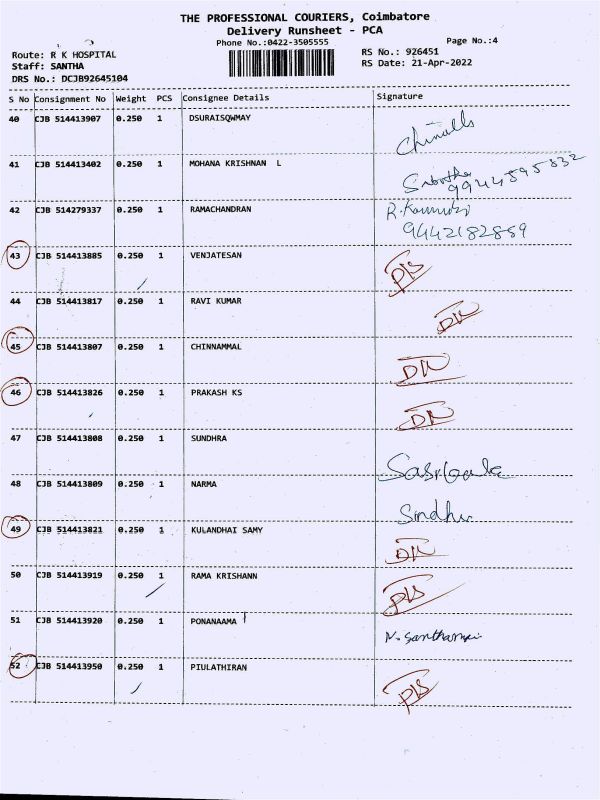 THE PROFESSIONAL COURIERS, Coimbatore
Delivery Runsheet - PCA
Phone No.:0422-3505555
Page No.:4
Route: R K HOSPITAL
RS No.: 926451
Staff: SANTHA
RS Date: 21-Apr-2022
DRS No.: DCJB92645104
S No Consignment No Weight PCS Consignee Details Signature
40 CJB 514413907 0.250 1 DSURAISQWMAY
41 CJB 514413402 0.250 1 MOHANA KRISHNAN L
9944595832
42 CJB 514279337 0.250 1 RAMACHANDRAN
9442182859
43 CJB 514413885 0.250 1 VENJATESAN
44 CJB 514413817 0.250 1 RAVI KUMAR
45 CJB 514413807 0.250 1 CHINNAMMAL
46 CJB 514413826 0.250 1 PRAKASH KS
47 CJB 514413808 0.250 1 SUNDHRA
48 CJB 514413809 0.250 1 NARMA
Sindhu
49 CJB 514413821 0.250 1 KULANDHAI SAMY
50 CJB 514413919 0.250 1 RAMA KRISHANN
51 CJB 514413920 0.250 1 PONANAAMA
52 CJB 514413950 0.250 1 PIULATHIRAN